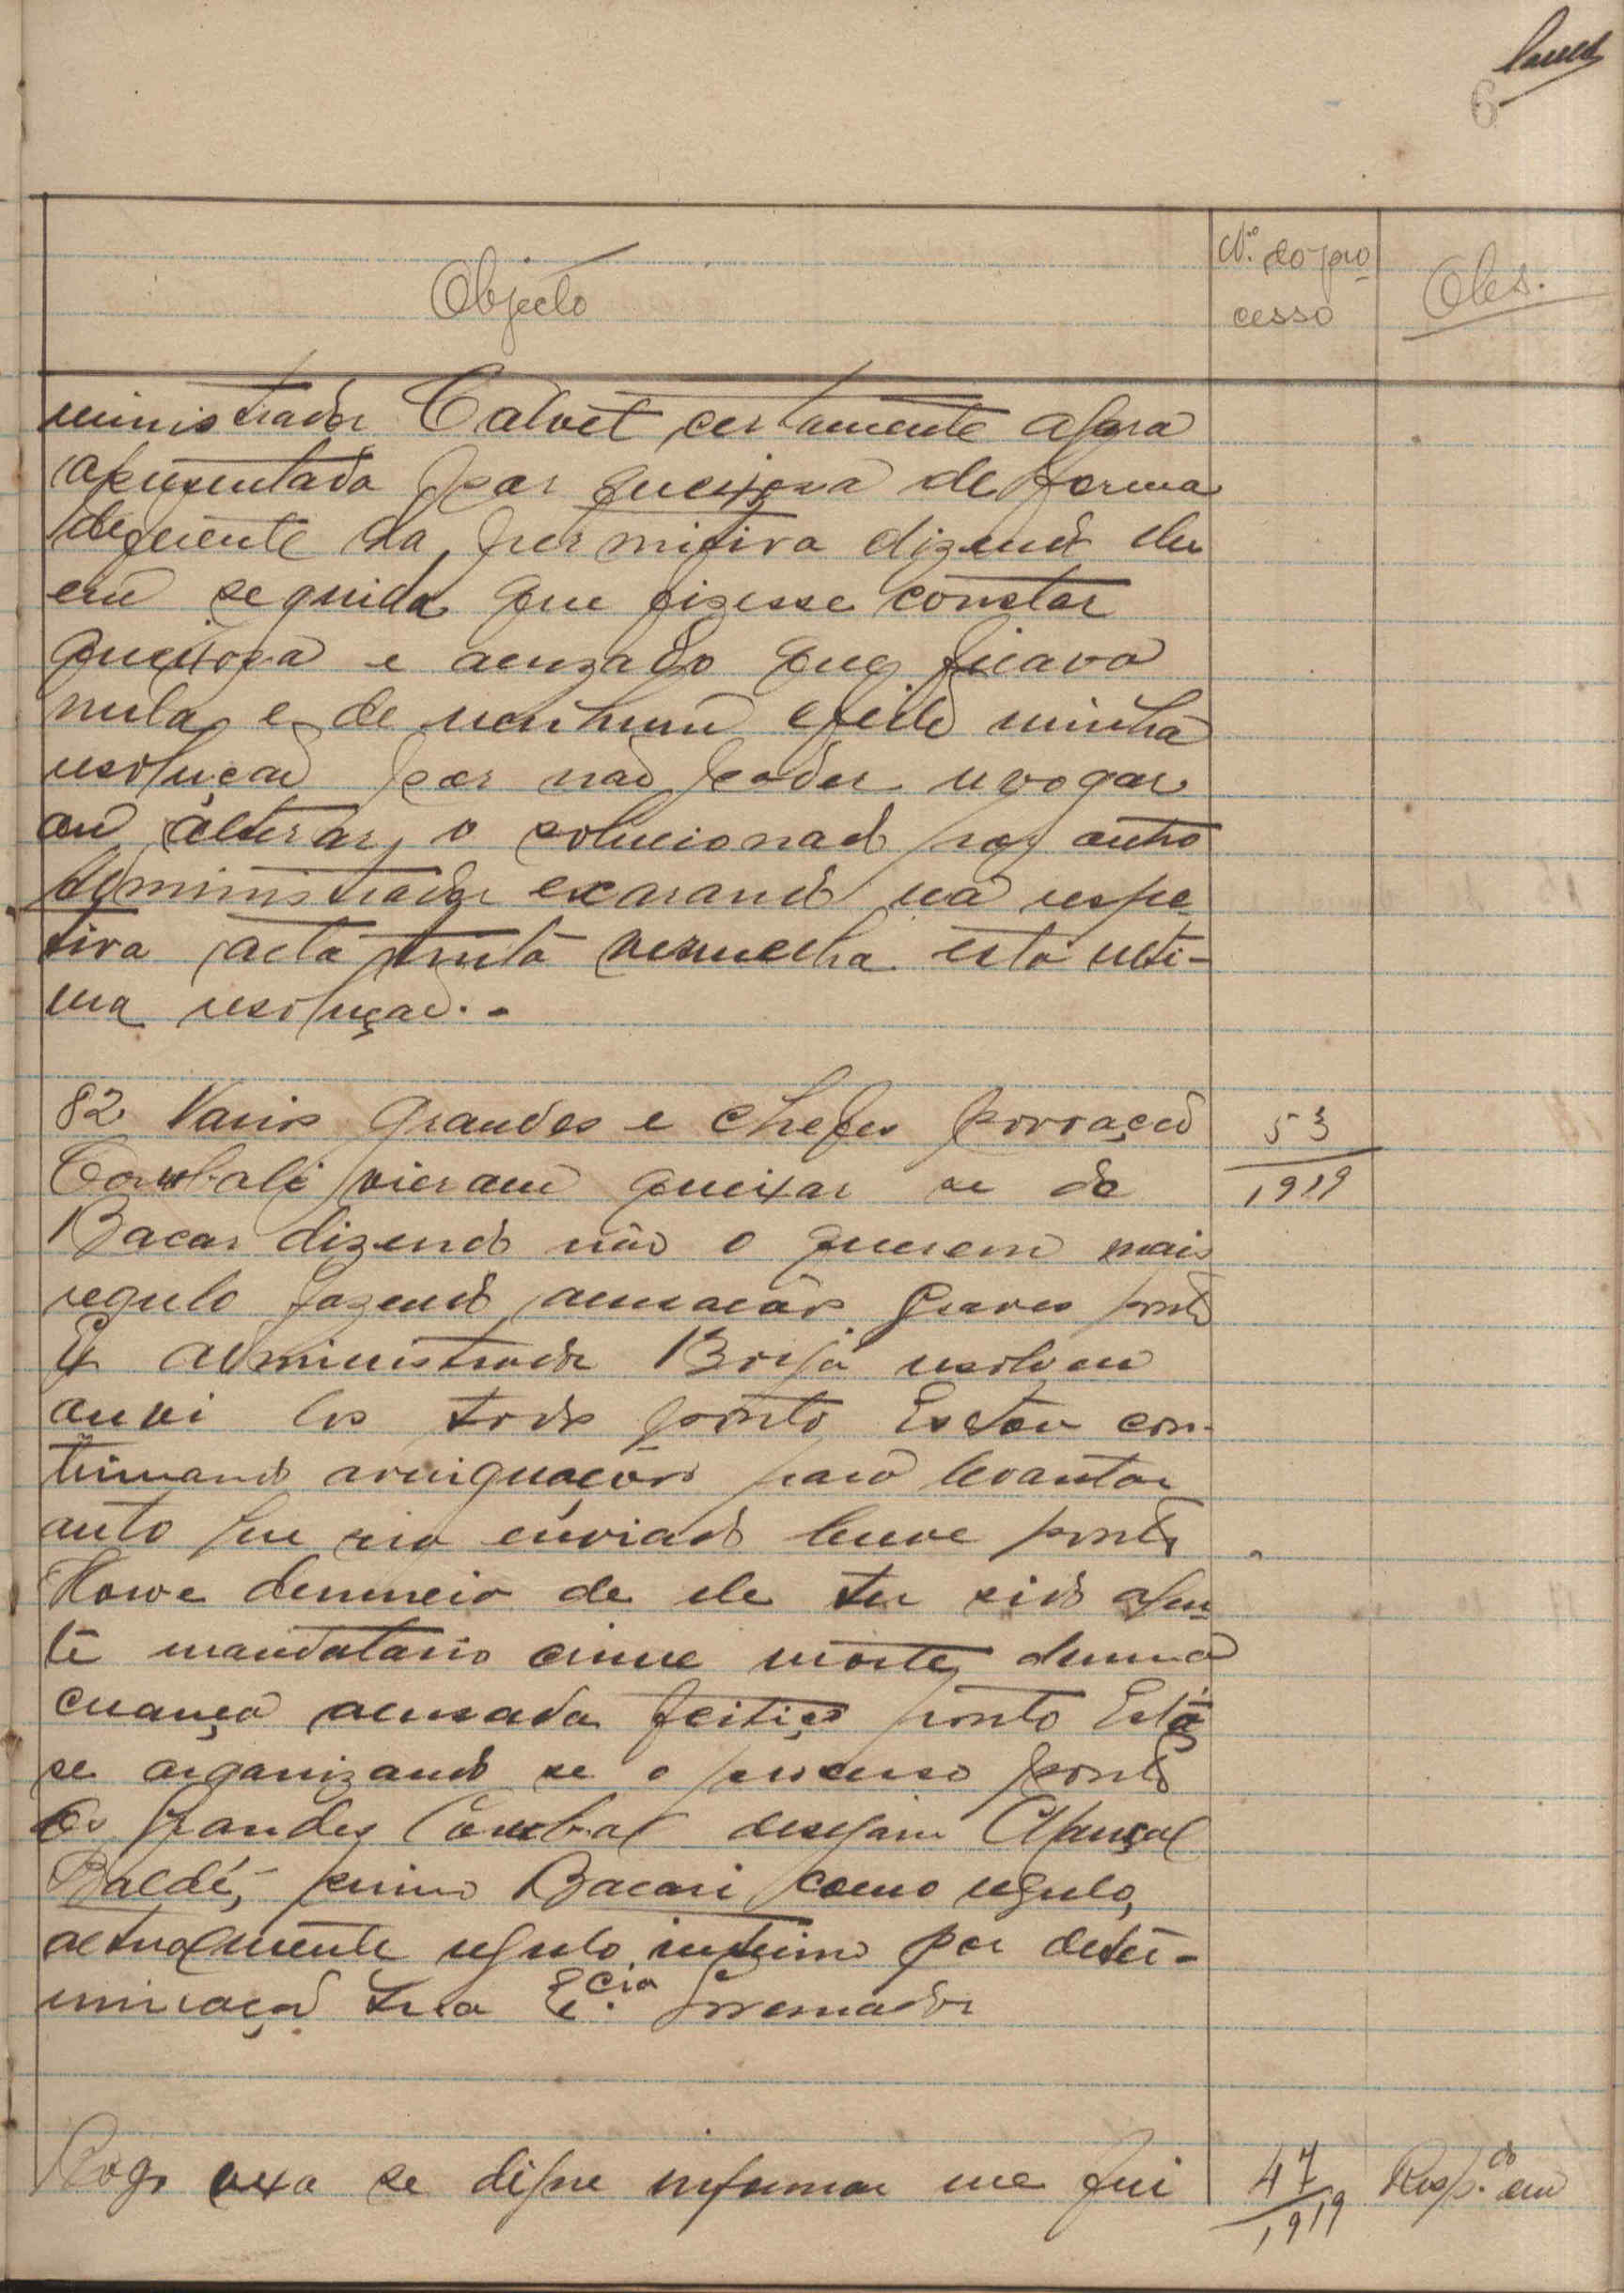 6
Objecto
N.º do pro
cesso
Obs.
ministrador Calvet certamente agora
apresentada por queixosa de forma
diferente da primitiva dizendo
em seguida que fizesse constar
queixosa e acuzado que ficava
nula e de nenhum efeito minha
resolução por não poder revogar
ou alterar o solucionado por outro
administrador exarando na respe-
tiva acta tinta vermelha esta ulti-
ma resolução.-
82 Varios grandes e chefes povoação
Corubal vieram queixar se do
Bacar dizendo não o querem mais
regulo fazendo acusações graves ponto
Ex administrador resolveu
ouvi los todos ponto Estou con-
tinuando averiguações para levantar
auto que sera enviado breve ponto
Houve denuncia de ele ter sido agen-
te mandatario crime morte duma
creança acusada feitiço ponto Está
se organizando se o processo ponto
Os grandes Corubal desejam
Baldé, primo Bacari como regulo,
actualmente regulo interino por deter-
minação Sua E.cia Governador
Rogo vexa se digne informar me que
53
1919
47
1919
Resp.do em